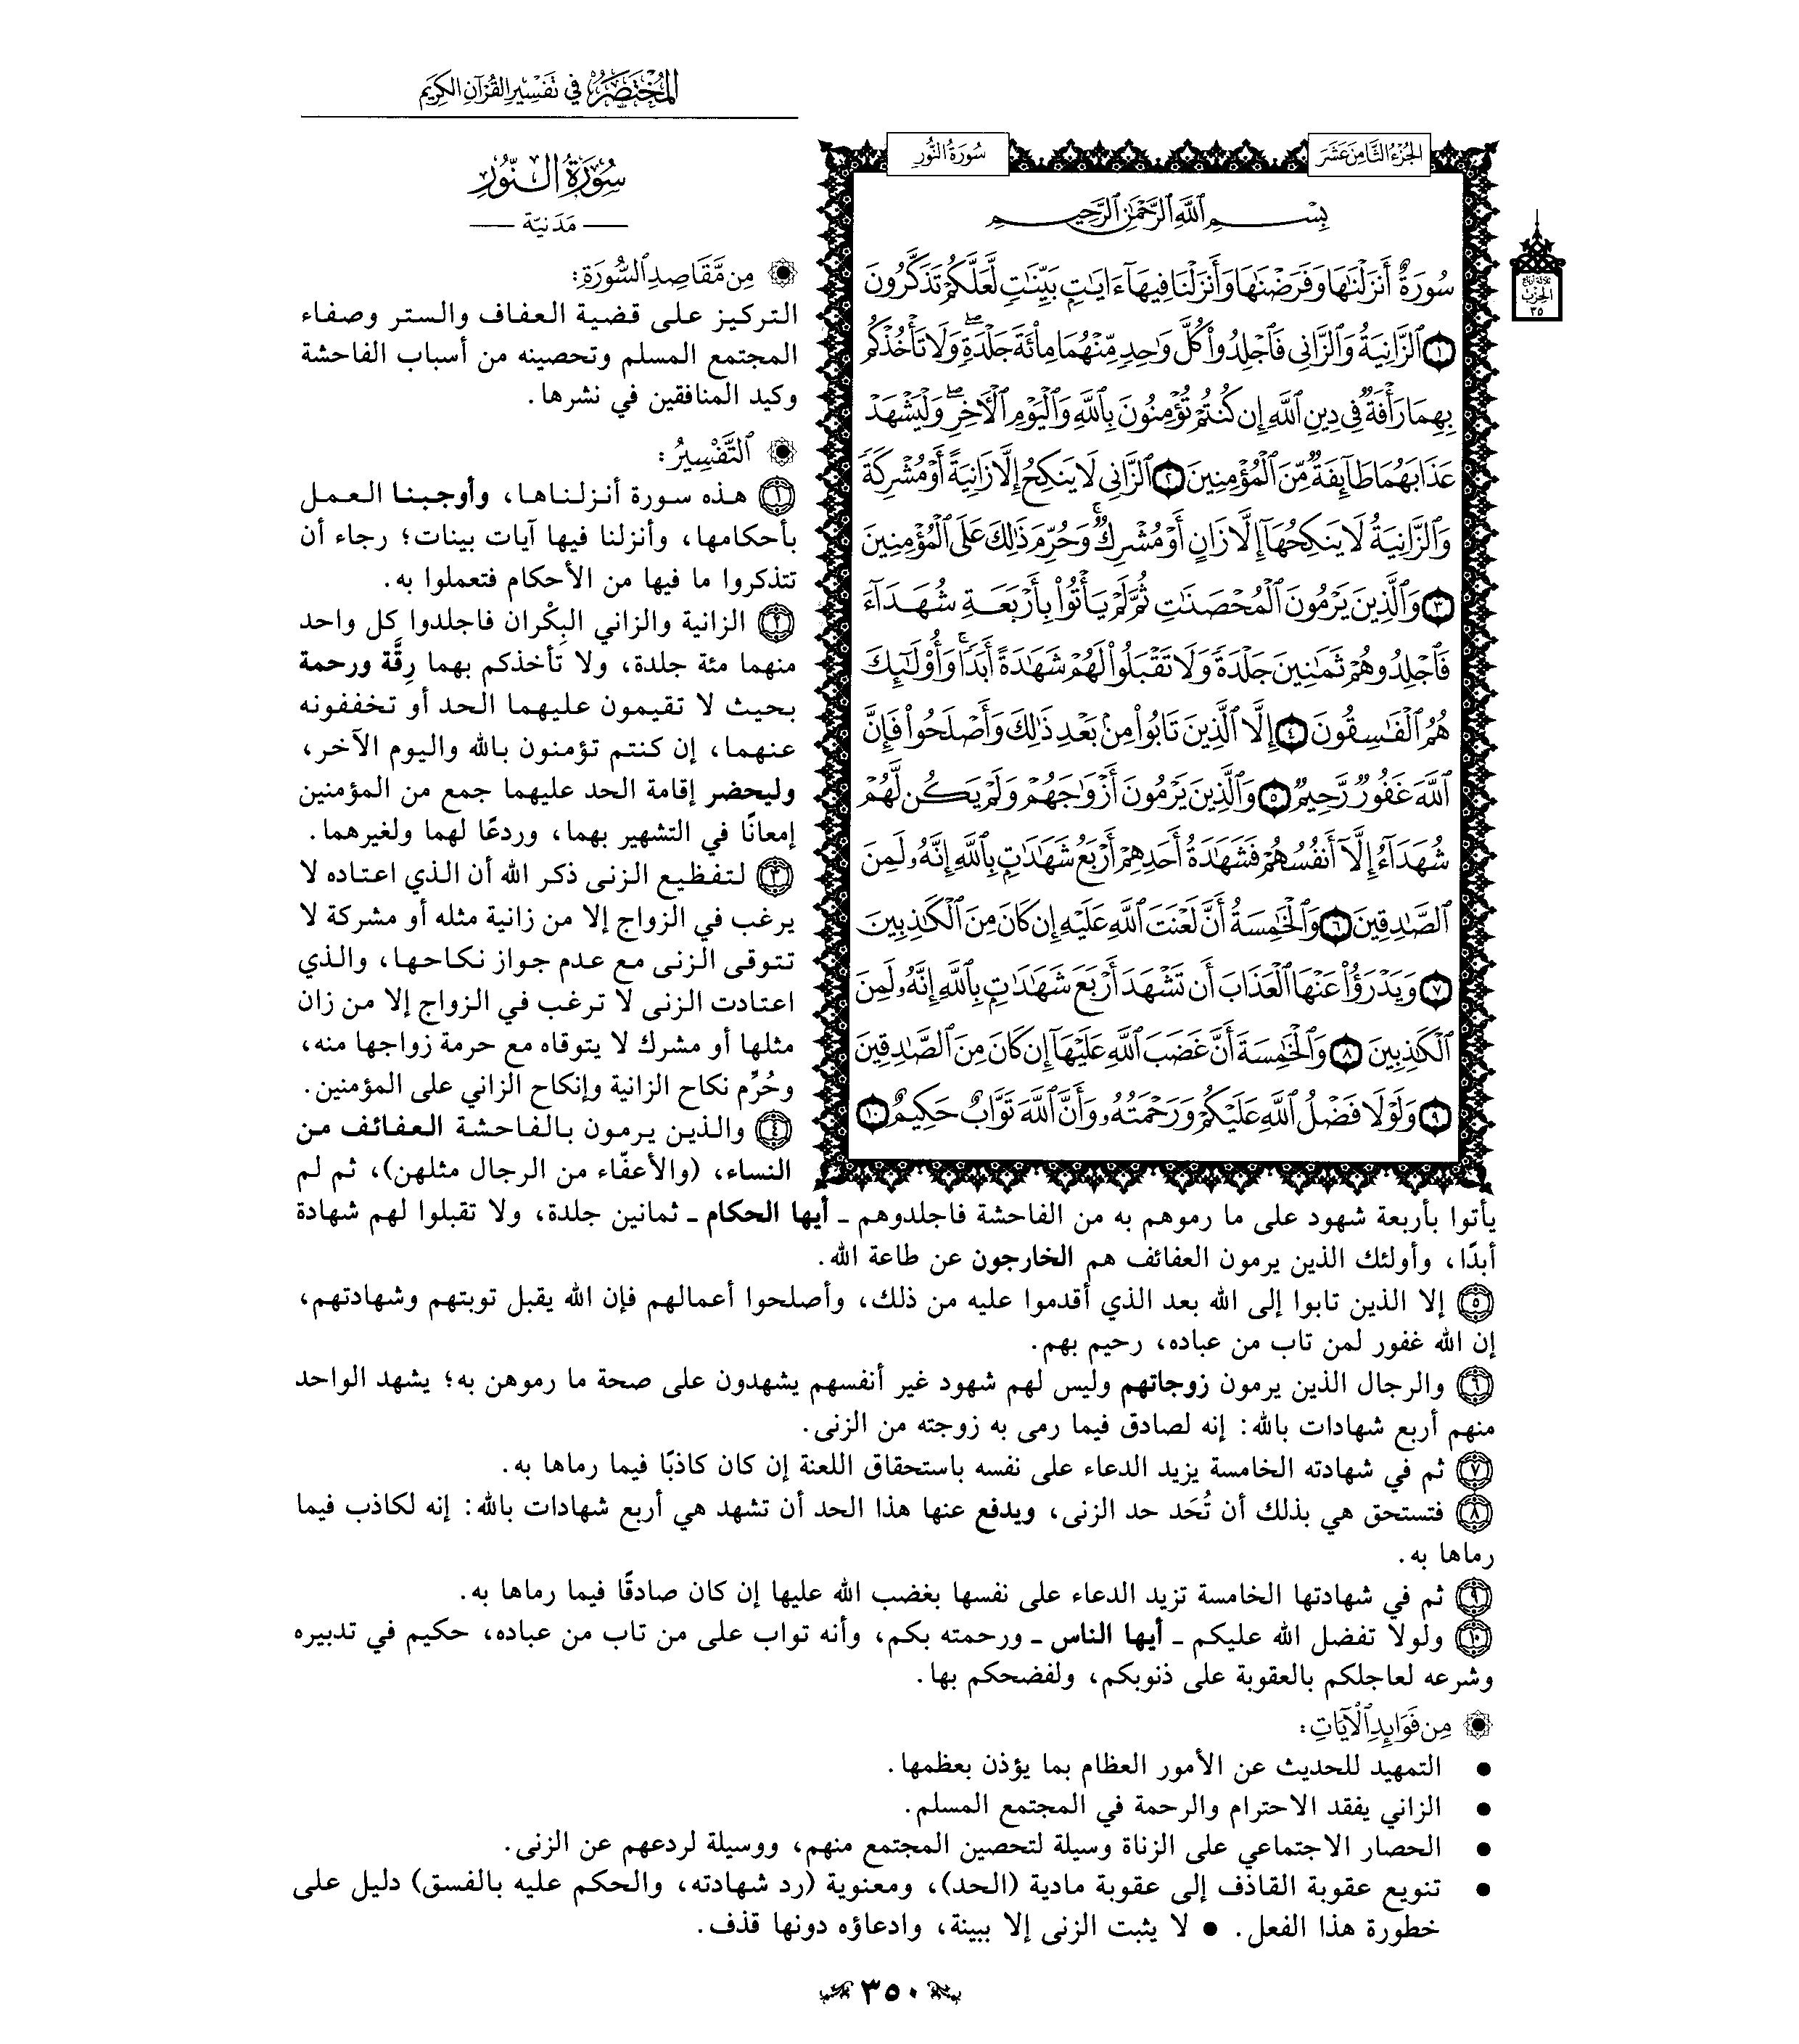 المختصر في تفسير القرآن الكريم
الجزء الثامن عشر
سورة النور
ثلاثة أرباع
الحزب
٣٥
بِسْمِ ٱللَّهِ ٱلرَّحْمَٰنِ ٱلرَّحِيمِ
سُورَةٌ أَنزَلْنَٰهَا وَفَرَضْنَٰهَا وَأَنزَلْنَا فِيهَآ ءَايَٰتٍۭ بَيِّنَٰتٍ لَّعَلَّكُمْ تَذَكَّرُونَ
١ ٱلزَّانِيَةُ وَٱلزَّانِي فَٱجْلِدُوا۟ كُلَّ وَٰحِدٍ مِّنْهُمَا مِا۟ئَةَ جَلْدَةٍۖ وَلَا تَأْخُذْكُم
بِهِمَا رَأْفَةٌ فِي دِينِ ٱللَّهِ إِن كُنتُمْ تُؤْمِنُونَ بِٱللَّهِ وَٱلْيَوْمِ ٱلْأَخِرِۖ وَلْيَشْهَدْ
عَذَابَهُمَا طَآئِفَةٌ مِّنَ ٱلْمُؤْمِنِينَ ٢ ٱلزَّانِي لَا يَنكِحُ إِلَّا زَانِيَةً أَوْ مُشْرِكَةً
وَٱلزَّانِيَةُ لَا يَنكِحُهَآ إِلَّا زَانٍ أَوْ مُشْرِكٌۚ وَحُرِّمَ ذَٰلِكَ عَلَى ٱلْمُؤْمِنِينَ
٣ وَٱلَّذِينَ يَرْمُونَ ٱلْمُحْصَنَٰتِ ثُمَّ لَمْ يَأْتُوا۟ بِأَرْبَعَةِ شُهَدَآءَ
فَٱجْلِدُوهُمْ ثَمَٰنِينَ جَلْدَةً وَلَا تَقْبَلُوا۟ لَهُمْ شَهَٰدَةً أَبَدًاۚ وَأُو۟لَٰٓئِكَ
هُمُ ٱلْفَٰسِقُونَ ٤ إِلَّا ٱلَّذِينَ تَابُوا۟ مِنۢ بَعْدِ ذَٰلِكَ وَأَصْلَحُوا۟ فَإِنَّ
ٱللَّهَ غَفُورٌ رَّحِيمٌ ٥ وَٱلَّذِينَ يَرْمُونَ أَزْوَٰجَهُمْ وَلَمْ يَكُن لَّهُمْ
شُهَدَآءُ إِلَّآ أَنفُسُهُمْ فَشَهَٰدَةُ أَحَدِهِمْ أَرْبَعُ شَهَٰدَٰتٍۭ بِٱللَّهِ إِنَّهُۥ لَمِنَ
ٱلصَّٰدِقِينَ ٦ وَٱلْخَٰمِسَةُ أَنَّ لَعْنَتَ ٱللَّهِ عَلَيْهِ إِن كَانَ مِنَ ٱلْكَٰذِبِينَ
٧ وَيَدْرَؤُا۟ عَنْهَا ٱلْعَذَابَ أَن تَشْهَدَ أَرْبَعَ شَهَٰدَٰتٍۭ بِٱللَّهِ إِنَّهُۥ لَمِنَ
ٱلْكَٰذِبِينَ ٨ وَٱلْخَٰمِسَةَ أَنَّ غَضَبَ ٱللَّهِ عَلَيْهَآ إِن كَانَ مِنَ ٱلصَّٰدِقِينَ
٩ وَلَوْلَا فَضْلُ ٱللَّهِ عَلَيْكُمْ وَرَحْمَتُهُۥ وَأَنَّ ٱللَّهَ تَوَّابٌ حَكِيمٌ ١٠
سورة النور
مَدَنيّة
من مقاصد السورة:
التركيز على قضية العفاف والستر وصفاء
المجتمع المسلم وتحصينه من أسباب الفاحشة
وكيد المنافقين في نشرها.
التفسير:
١ هذه سورة أنزلناها، وأوجبنا العمل
بأحكامها، وأنزلنا فيها آيات بينات؛ رجاء أن
تتذكروا ما فيها من الأحكام فتعملوا به.
٢ الزانية والزاني البِكْران فاجلدوا كل واحد
منهما مئة جلدة، ولا تأخذكم بهما رِقَّة ورحمة
بحيث لا تقيمون عليهما الحد أو تخففونه
عنهما، إن كنتم تؤمنون بالله واليوم الآخر،
وليحضر إقامة الحد عليهما جمع من المؤمنين
إمعانًا في التشهير بهما، وردعًا لهما ولغيرهما.
٣ لتفظيع الزنى ذكر الله أن الذي اعتاده لا
يرغب في الزواج إلا من زانية مثله أو مشركة لا
تتوقى الزنى مع عدم جواز نكاحها، والذي
اعتادت الزنى لا ترغب في الزواج إلا من زان
مثلها أو مشرك لا يتوقاه مع حرمة زواجها منه،
وحُرِّم نكاح الزانية وإنكاح الزاني على المؤمنين.
٤ والذين يرمون بالفاحشة العفائف من
النساء، (والأعفّاء من الرجال مثلهن)، ثم لم
يأتوا بأربعة شهود على ما رموهم به من الفاحشة فاجلدوهم ـ أيها الحكام ـ ثمانين جلدة، ولا تقبلوا لهم شهادة
أبدًا، وأولئك الذين يرمون العفائف هم الخارجون عن طاعة الله.
٥ إلا الذين تابوا إلى الله بعد الذي أقدموا عليه من ذلك، وأصلحوا أعمالهم فإن الله يقبل توبتهم وشهادتهم،
إن الله غفور لمن تاب من عباده، رحيم بهم.
٦ والرجال الذين يرمون زوجاتهم وليس لهم شهود غير أنفسهم يشهدون على صحة ما رموهن به؛ يشهد الواحد
منهم أربع شهادات بالله: إنه لصادق فيما رمى به زوجته من الزنى.
٧ ثم في شهادته الخامسة يزيد الدعاء على نفسه باستحقاق اللعنة إن كان كاذبًا فيما رماها به.
٨ فتستحق هي بذلك أن تُحَد حد الزنى، ويدفع عنها هذا الحد أن تشهد هي أربع شهادات بالله: إنه لكاذب فيما
رماها به.
٩ ثم في شهادتها الخامسة تزيد الدعاء على نفسها بغضب الله عليها إن كان صادقًا فيما رماها به.
١٠ ولولا تفضل الله عليكم ـ أيها الناس ـ ورحمته بكم، وأنه تواب على من تاب من عباده، حكيم في تدبيره
وشرعه لعاجلكم بالعقوبة على ذنوبكم، ولفضحكم بها.
من فوائد الآيات:
● التمهيد للحديث عن الأمور العظام بما يؤذن بعظمها.
● الزاني يفقد الاحترام والرحمة في المجتمع المسلم.
● الحصار الاجتماعي على الزناة وسيلة لتحصين المجتمع منهم، ووسيلة لردعهم عن الزنى.
● تنويع عقوبة القاذف إلى عقوبة مادية (الحد)، ومعنوية (رد شهادته، والحكم عليه بالفسق) دليل على
خطورة هذا الفعل. ● لا يثبت الزنى إلا ببينة، وادعاؤه دونها قذف.
٣٥٠